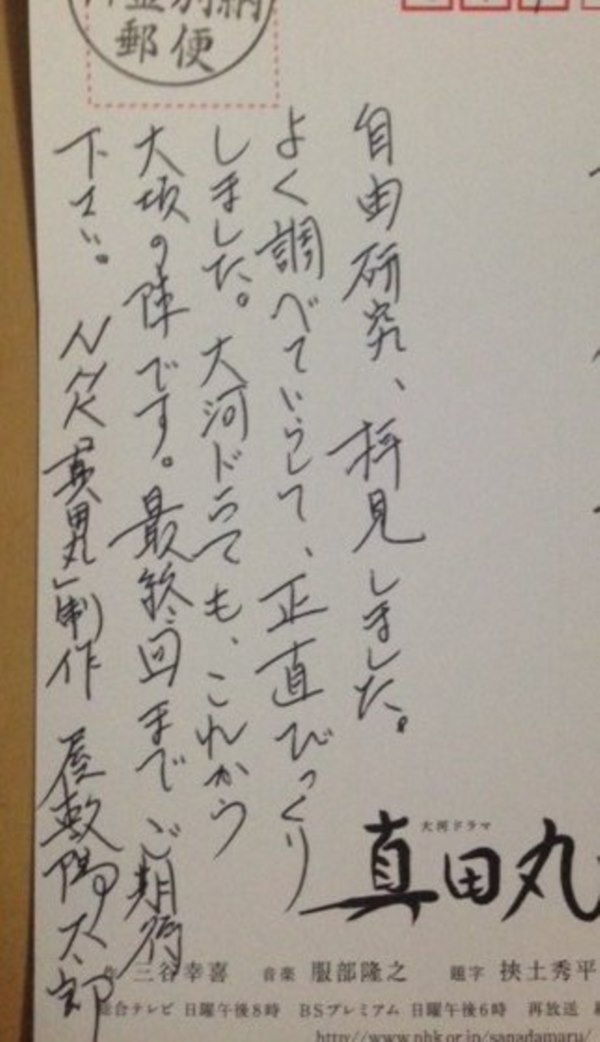 郵便
自由研究、拝見しました。
よく調べていらして、正直びっくり
しました。大河ドラマでも、これから
大坂の陣です。最終回までご期待
下さい。 NHK「真田丸」制作 屋敷陽太郎
大河ドラマ
真田丸
三谷幸喜 音楽 服部隆之 題字 挾土秀平
総合テレビ 日曜午後8時 BSプレミアム 日曜午後6時 再放送
http://www.nhk.or.jp/sanadamaru/